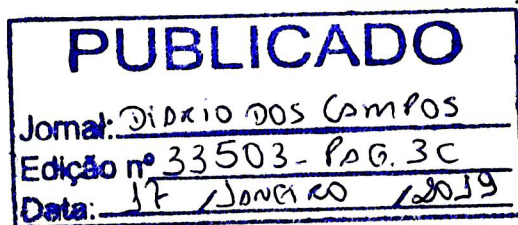 PUBLICADO
Jornal: DIÁRIO DOS CAMPOS
Edição nº 33503 - PAG. 3C
Data: 17 / JANEIRO / 2019